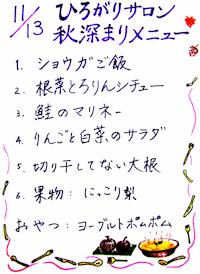 11/13
ひろがりサロン
秋深まりメニュー
1. ショウガご飯
2. 根菜とろりんシチュー
3. 鮭のマリネー
4. りんごと白菜のサラダ
5. 切り干してない大根
6. 果物:にっこり梨
おやつ:ヨーグルトポムポム